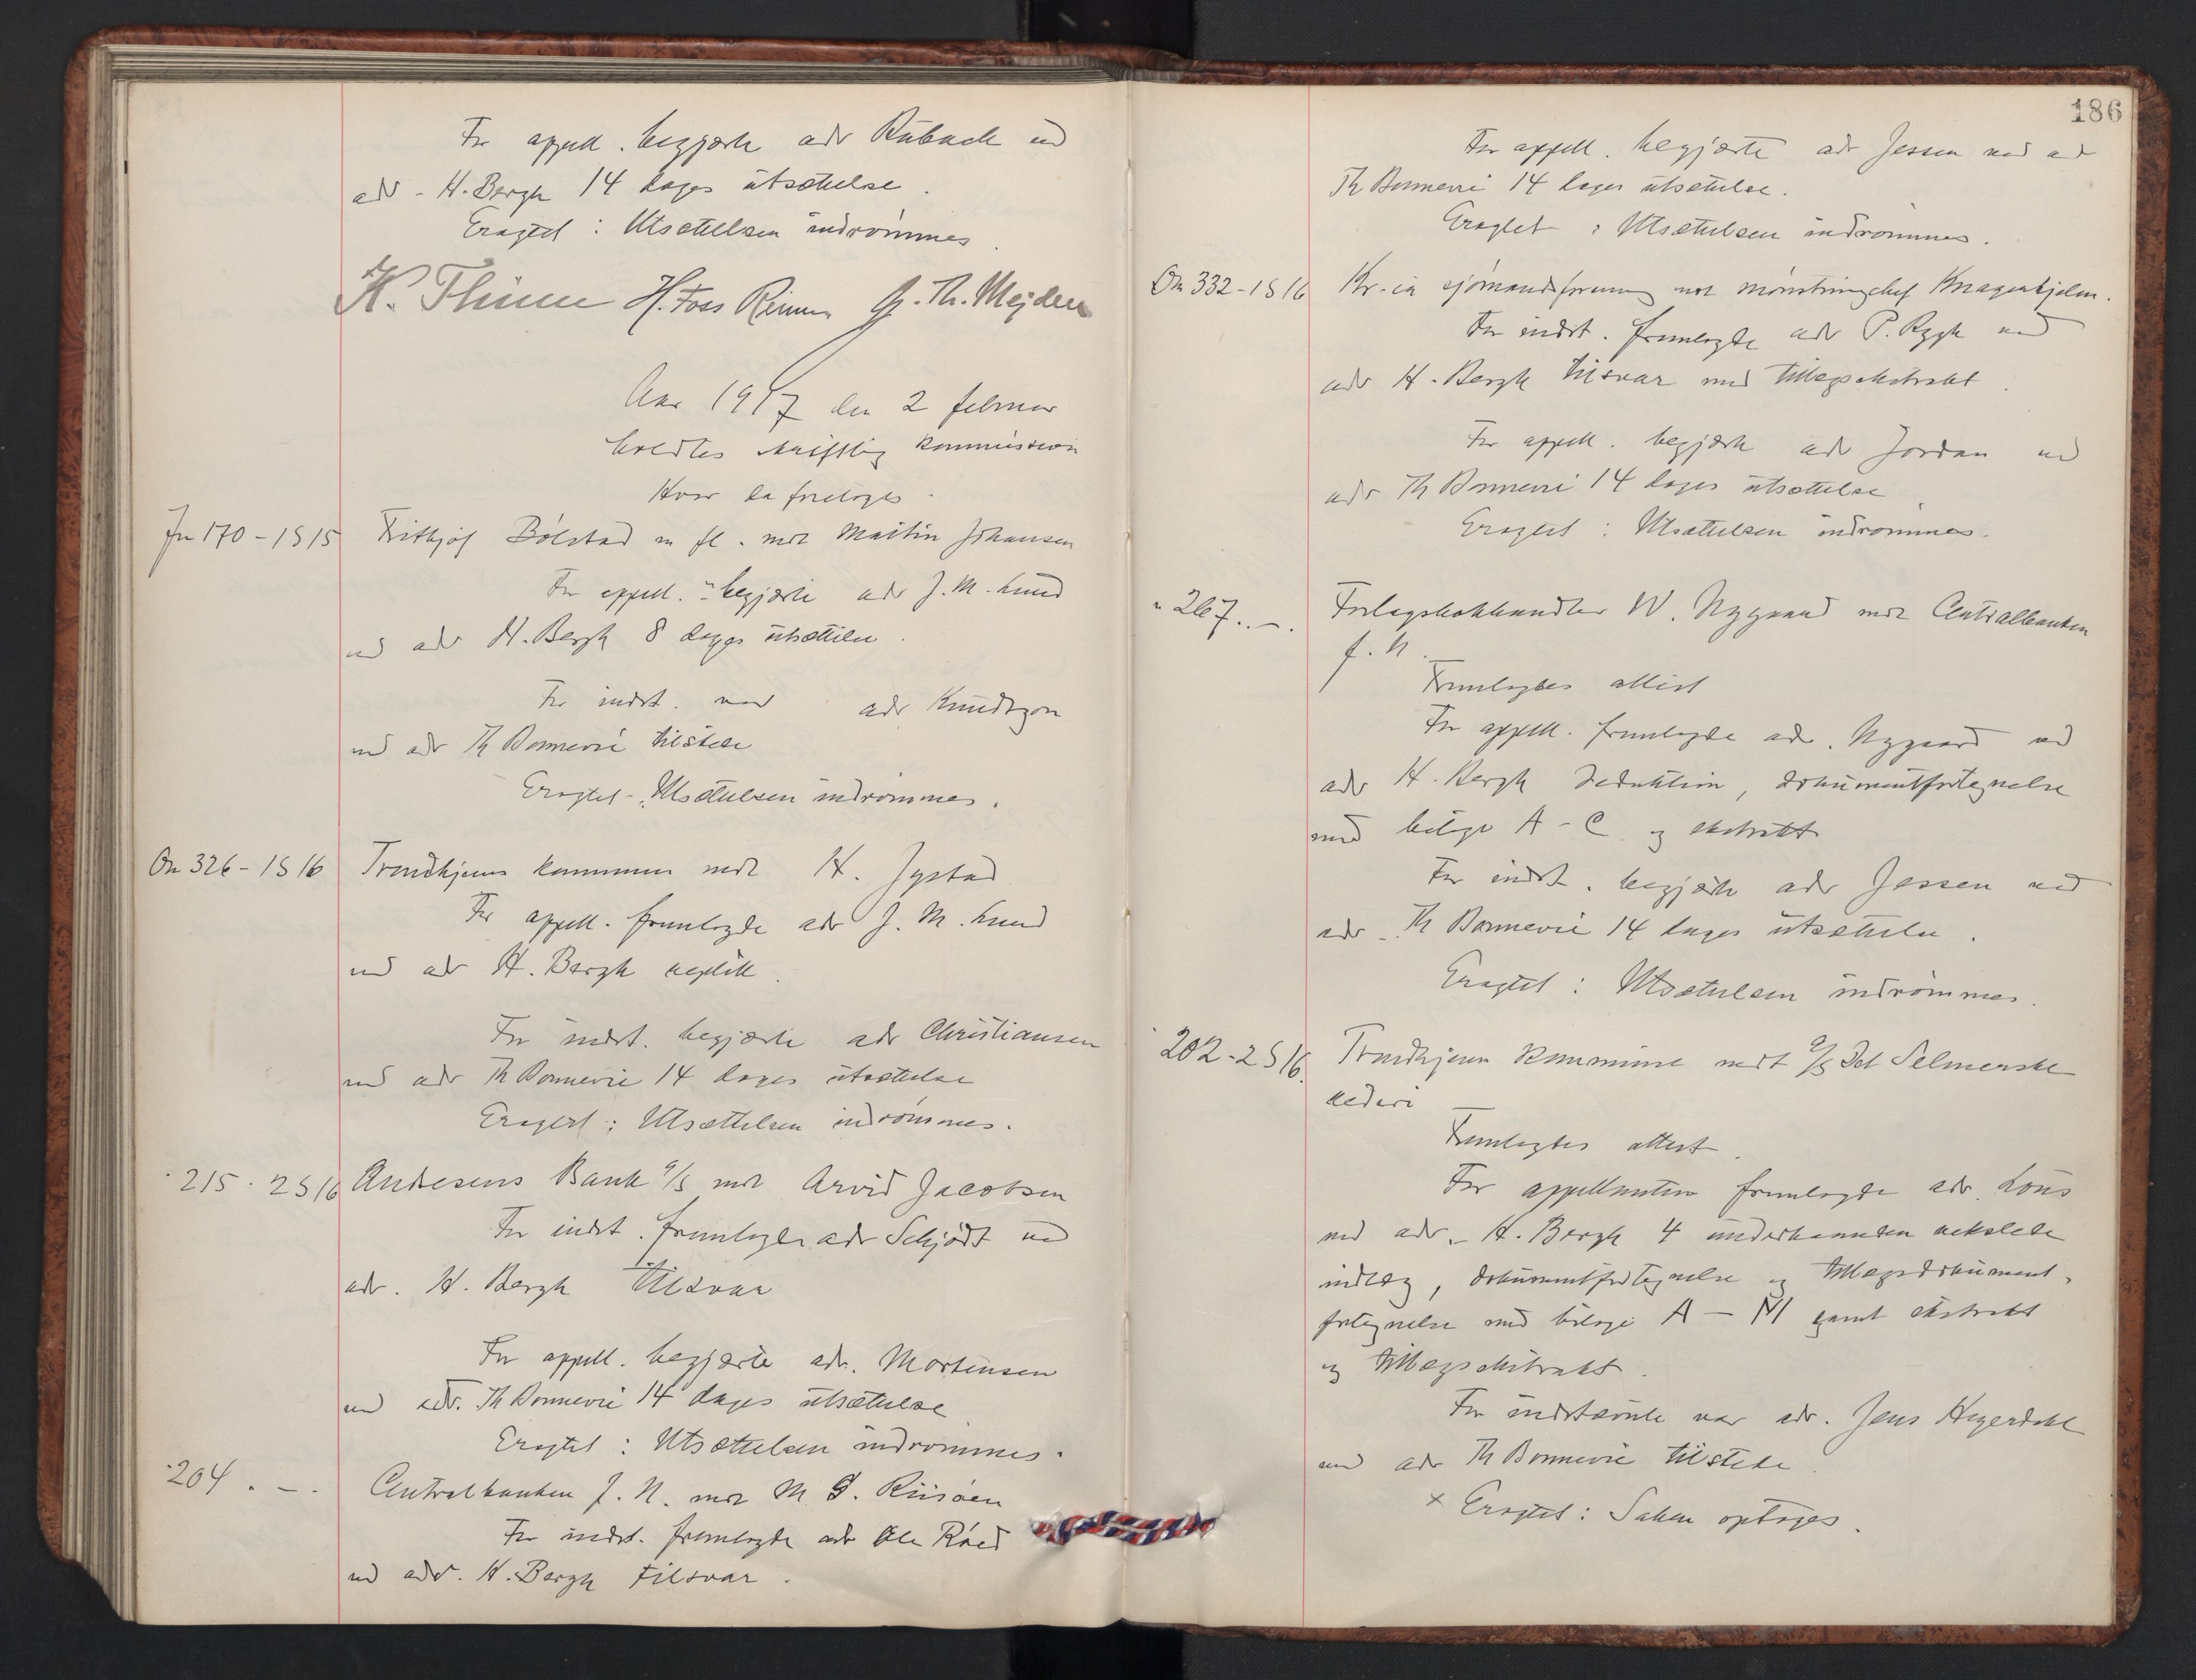 For appell. begjærte adv Rübach ved
adv. H. Bergh 14 dages utsættelse.
Eragtet: Utsættelsen indrømmes.
K. Thinn H. Foss Reimers G. Th. Mejdell
Aar 1917 den 2 februar
holdtes skriftlig kommission
Hvor da foretoges
Jn 170 - 1S 15 Frithjof Bølstad m fl. mot Martin Johansen
For appell. begjærte adv J. M. Lund
ved adv H. Bergh 8 dages utsættelse.
For indst. var adv Knudtzon
ved adv Th Bonnevie tilstede
Eragtet - Utsættelsen indrømmes.
On 326 - 1S 16 Trondhjems kommune mot H. Jystad
For appell. fremlagde adv J. M. Lund
ved adv H. Bergh replik.
For indst. begjærte adv Christiansen
ved adv Th Bonnevie 14 dages utsættelse
Eragtet: Utsættelsen indrømmes.
" 215 - 2S 16 Andresens Bank a/s mot Arvid Jacobsen
For indst. fremlagde adv Schjødt ved
adv. H. Bergh Tilsvar
For appell. begjærte adv. Mortensen
ved adv. Th Bonnevie 14 dages utsættelse
Eragtet: Utsættelsen indrømmes.
" 204 . - . Centralbanken f. N. mot M S. Riisøen
For indst. fremlagde adv Ole Røed
ved adv. H. Bergh Tilsvar.
186
For appell. begjærte adv Jessen ved adv
Th Bonnevie 14 dages utsættelse.
Eragtet: Utsættelsen indrømmes.
On 332 - 1S 16 Kr.ia sjømandsforening mot mønstringschef Knagenhjelm.
For indst. fremlagde adv P. Rygh ved
adv H. Bergh tilsvar med tillægsekstrakt.
For appell. begjærte adv Jordan ved
adv Th Bonnevie 14 dages utsættelse
Eragtet: Utsættelsen indrømmes.
" 267 . - . Forlagsbokhandler W. Nygaard mot Centralbanken
f. N.
Fremlagdes attest
For appell. fremlagde adv. Nygaard ved
adv H. Bergh deduktion, dokumentfortegnelse
med bilage A - C og ekstrakt
For indst. begjærte adv Jessen ved
adv. Th Bonnevie 14 dages utsættelse.
Eragtet: Utsættelsen indrømmes.
" 202 - 2S 16. Trondhjem kommune mot a/s Det Selmerske
rederi
Fremlagdes attest.
For appellanten fremlagde adv. Lous
ved adv. H. Bergh 4 underhaanden vekslede
indlæg, dokumentfortegnelse og tillægsdokument-
fortegnelse med bilage A - N samt ekstrakt
og tillægsekstrakt.
For indstævnte var adv. Jens Heyerdahl
ved adv Th Bonnevie tilstede.
x Eragtet: Saken optages.